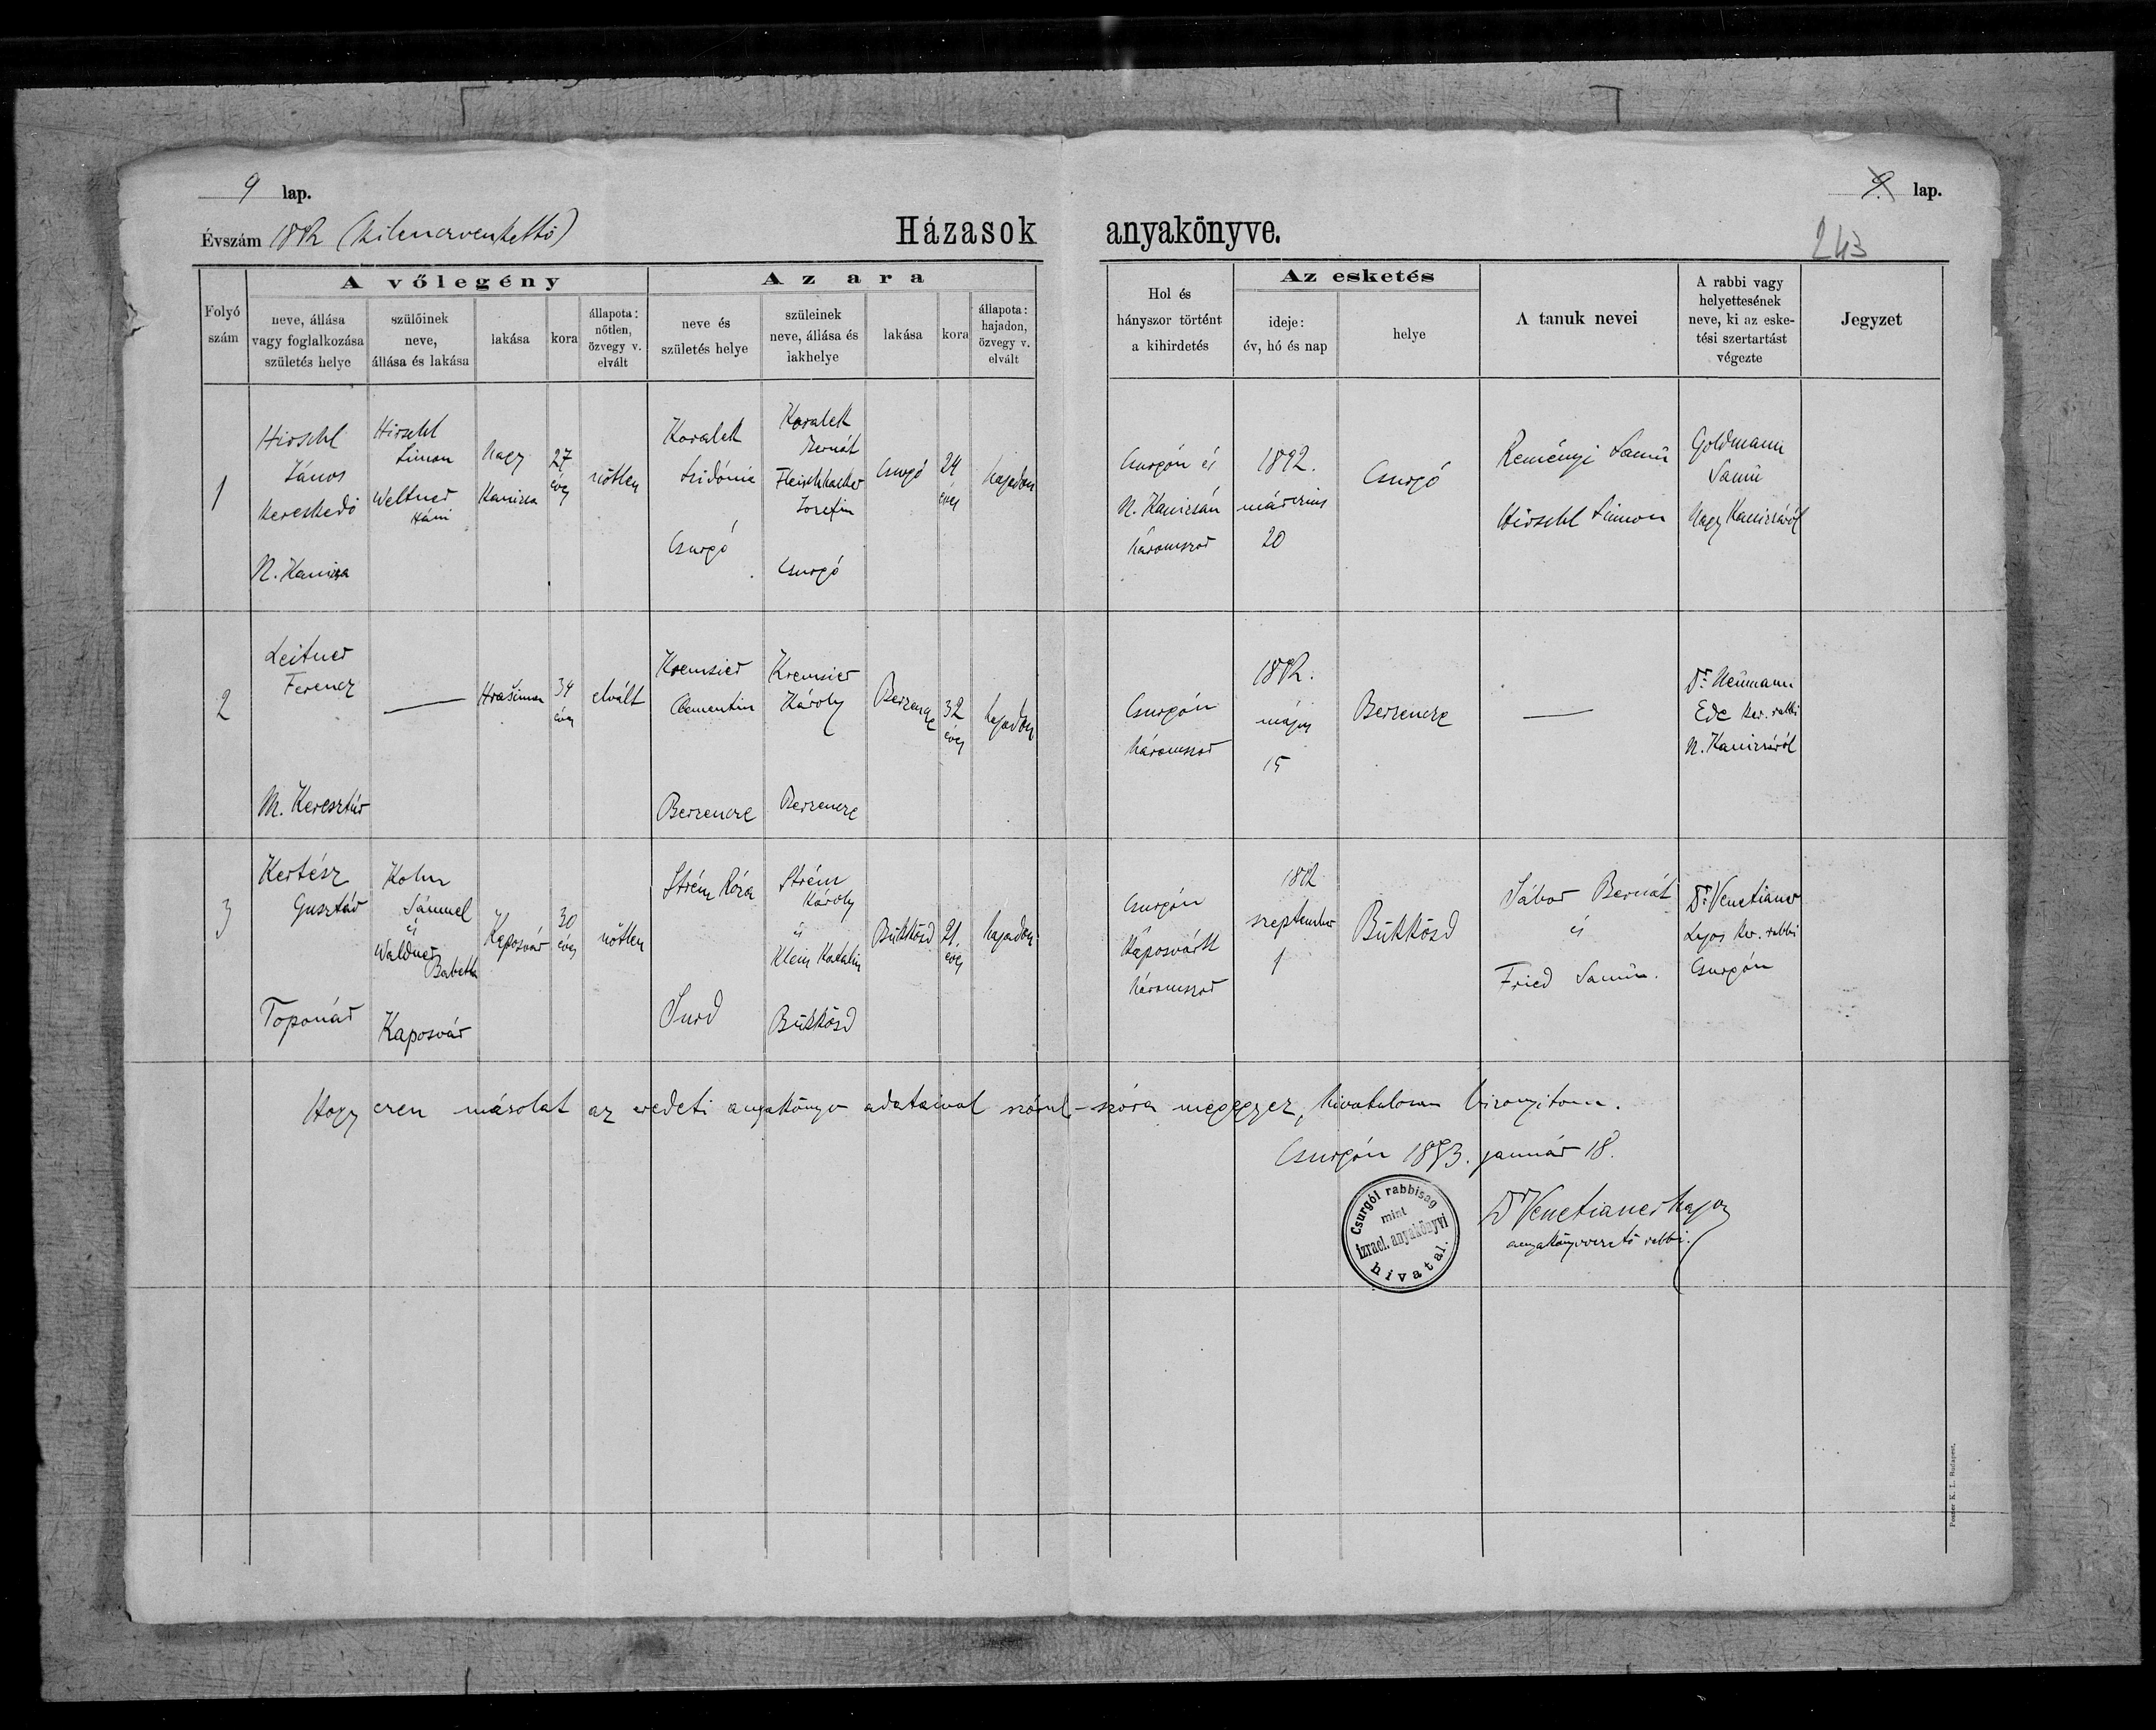 9 lap.
9. lap.
Évszám 1892 (kilenczvenkettő)
Házasok anyakönyve.
243
Folyó szám
A vőlegény
neve, állása vagy foglalkozása születés helye
szülőinek neve, állása és lakása
lakása
kora
állapota: nőtlen, özvegy v. elvált
Az ara
neve és születés helye
szüleinek neve, állása és lakhelye
lakása
kora
állapota: hajadon, özvegy v. elvált
Hol és hányszor történt a kihirdetés
Az esketés
ideje: év, hó és nap
helye
A tanuk nevei
A rabbi vagy helyettesének neve, ki az esketési szertartást végezte
Jegyzet
1
Hirschl
János
kereskedő
N. Kanizsa
Hirschl
Simon
Weltner
Háni
Nagy
Kanizsa
27
éves
nőtlen
Koralek
Szidónia
Csurgó
Koralek
Bernát
Fleischhacker
Jozefin
Csurgó
Csurgó
24
éves
hajadon
Csurgón és
N. Kanizsán
háromszor
1892.
márczius
20
Csurgó
Reményi Samű
Hirschl Simon
Goldmann
Samű
Nagy Kanizsáról
2
Leitner
Ferencz
M. Keresztúr
—
34
éves
elvált
Kremsier
Clementin
Berzencze
Kremsier
Károly
Berzencze
Berzencze
32
éves
hajadon
Csurgón
háromszor
1892.
május
15
Berzencze
—
Dr. Neumann
Ede ker. rabbi
N. Kanizsáról
3
Kertész
Gusztáv
Toponár
Kohn
Sámuel
és
Waldner
Babetta
Kaposvár
Kaposvár
30
éves
nőtlen
Strém Róza
Surd
Strém
Károly
és
Klein Katalin
Bükkösd
Bükkösd
21.
éves
hajadon
Csurgón
Kaposvártt
háromszor
1892
szeptember
1
Bükkösd
Sábor Bernát
és
Fried Samű.
Dr. Venetianer
Lajos ker. rabbi
Csurgón
Hogy ezen másolat az eredeti anyakönyv adataival szórul-szóra megegyez, hivatalosan bizonyitom.
Csurgón 1893. január 18.
Csurgói rabbiság
mint
izrael. anyakönyvi
hivatal.
Dr Venetianer Lajos
anyakönyvvezető rabbi.
Posner K. L. Budapest.